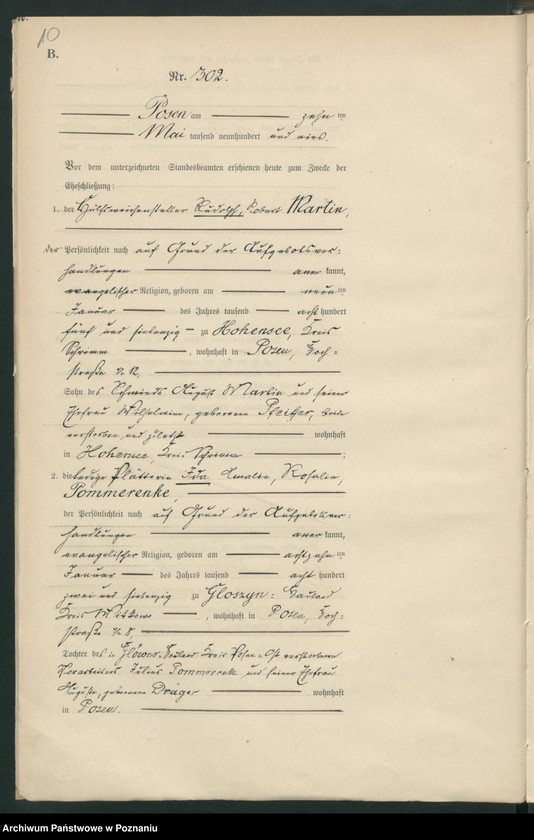 10
B.
Nr. 302.
Posen am zehnten
Mai tausend neunhundert und eins.
Vor dem unterzeichneten Standesbeamten erschienen heute zum Zwecke der
Eheschließung:
1. der Hülfsweichensteller Rudolph, Robert Martin,
der Persönlichkeit nach auf Grund der Aufgebotsver-
handlungen anerkannt,
evangelischer Religion, geboren am neunten
Januar des Jahres tausend achthundert
fünf und siebenzig zu Hohensee, Kreis
Schrimm, wohnhaft in Posen,
straße № 12,
Sohn des Schmieds August Martin und seiner
Ehefrau Wilhelmine, geborenen Pfeiffer, beide
verstorben und zuletzt wohnhaft
in Hohensee, Kreis Schrimm;
2. die ledige Plätterin Ida Amalie, Rosalie,
Pommerenke,
der Persönlichkeit nach auf Grund der Aufgebotsver-
handlungen anerkannt,
evangelischer Religion, geboren am achtzehnten
Januar des Jahres tausend achthundert
zwei und siebenzig zu Gloszyn-Hauland
Kreis Witkowo, wohnhaft in Posen,
straße № 8,
Tochter des in Glowno, Kreis Posen-Ost verstorbenen
Vorarbeiters Julius Pommerenke und seiner Ehefrau
Auguste, geborenen Dräger wohnhaft
in Posen.
Archiwum Państwowe w Poznaniu